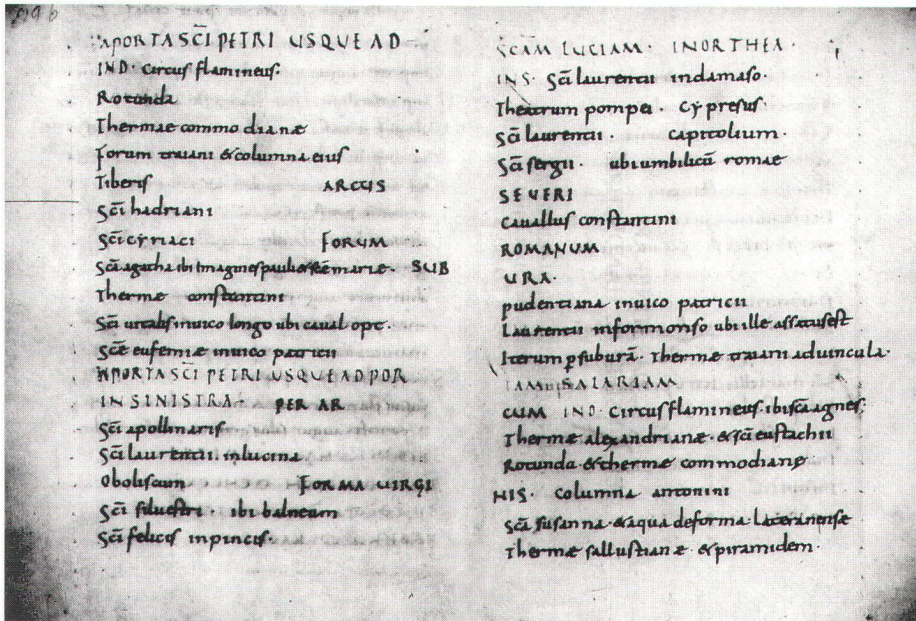 A PORTA SC̄I PETRI USQUE AD
IN D· Circus flamineus·
Rotunda
Thermae commodianæ
Forum traiani & columna eius
Tiberis ARCUS
Sc̄i hadriani
Sc̄i cyriaci FORUM
Sc̄a agatha ibi imagines pauli & sc̄e mariæ· SUB
Thermę constantini
Sc̄i uitalis inuico longo ubi caual opt·
Sc̄e eufemiæ inuico patricii
A PORTA SC̄I PETRI USQUE AD POR
IN SINISTRA· PER AR
Sc̄i apollinaris
Sc̄i laurentii in lucina
Oboliscum FORMA UIRGI
Sc̄i siluestri· ibi balneum
Sc̄i felicis inpincis·
SCĀM LUCIAM· IN ORTHEA·
IN S· Sc̄i laurentii indamaso·
Theatrum pompei Cypresus
Sc̄i laurentii· capitolium·
Sc̄i sergii· ubi umbilicū romae
SEUERI
Cauallus constantini
ROMANUM
URA·
pudentiana inuico patricii
Laurentii informonso ubi ille assatus est
Iterum ꝑ suburā· Thermæ traiani aduincula·
TAM SALARIAM
CUM IN D· Circus flamineus· ibi sc̄a agnes·
Thermæ alexandrianæ· & sc̄i eustachii
Rotunda & thermæ commodianę
NIS· Columna antonini
Sc̄a susanna· & aqua deforma lateranense
Thermæ sallustianæ· & piramidem·